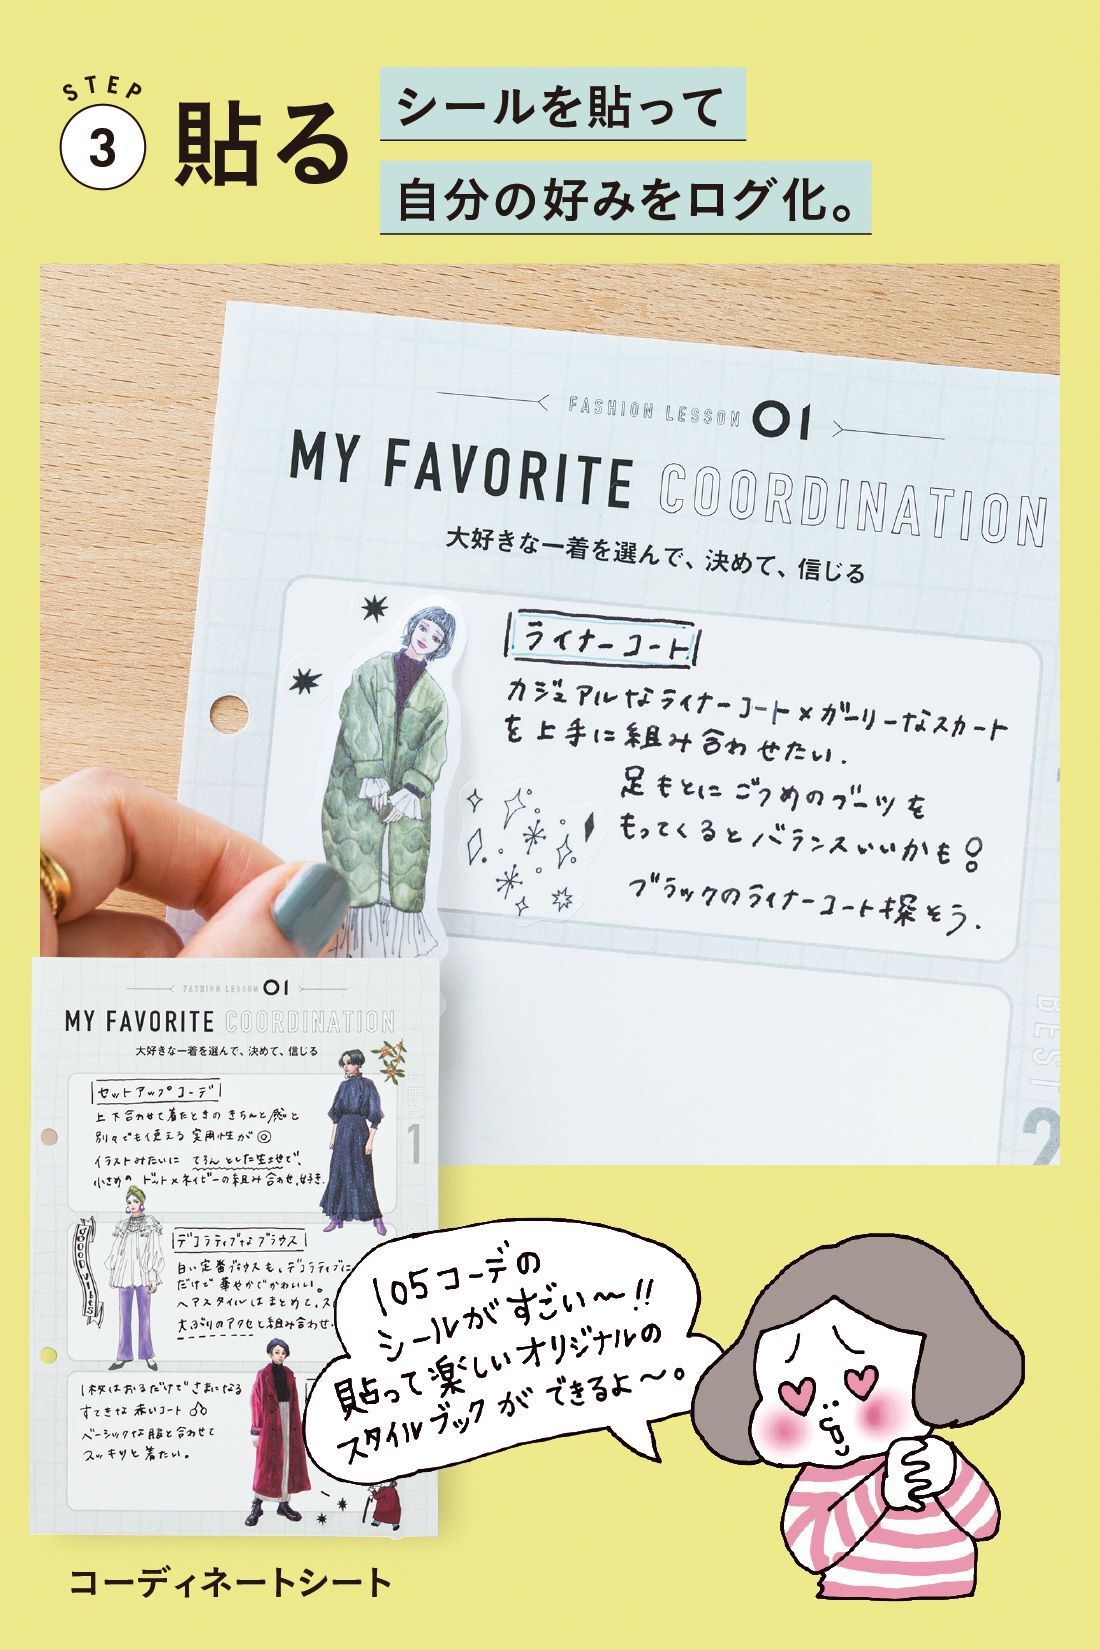 STEP
3
貼る
シールを貼って
自分の好みをログ化。
FASHION LESSON 01
MY FAVORITE COORDINATION
大好きな一着を選んで、決めて、信じる
ライナーコート
カジュアルなライナーコート×ガーリーなスカート
を上手に組み合わせたい.
足もとにごつめのブーツを
もってくるとバランスいいかも!
ブラックのライナーコート探そう.
BEST
2
FASHION LESSON 01
MY FAVORITE COORDINATION
大好きな一着を選んで、決めて、信じる
セットアップコーデ
上下合わせて着たときのきちんと感と
別々でも使える実用性が◎
イラストみたいにてろんとした生地で、
小さめのドット×ネイビーの組み合わせ、好き.
BEST
1
GOOOD VIBES
デコラティブなブラウス
白い定番ブラウスも、デコラティブに
だけで華やかでかわいい。
ヘアスタイルはまとめて、ス
大ぶりのアクセと組み合わせ.
1枚はおるだけでさまになる
すてきな赤いコート
ベーシックな服と合わせて
スッキリと着たい。
105コーデの
シールがすごい〜!!
貼って楽しいオリジナルの
スタイルブックができるよ〜。
コーディネートシート